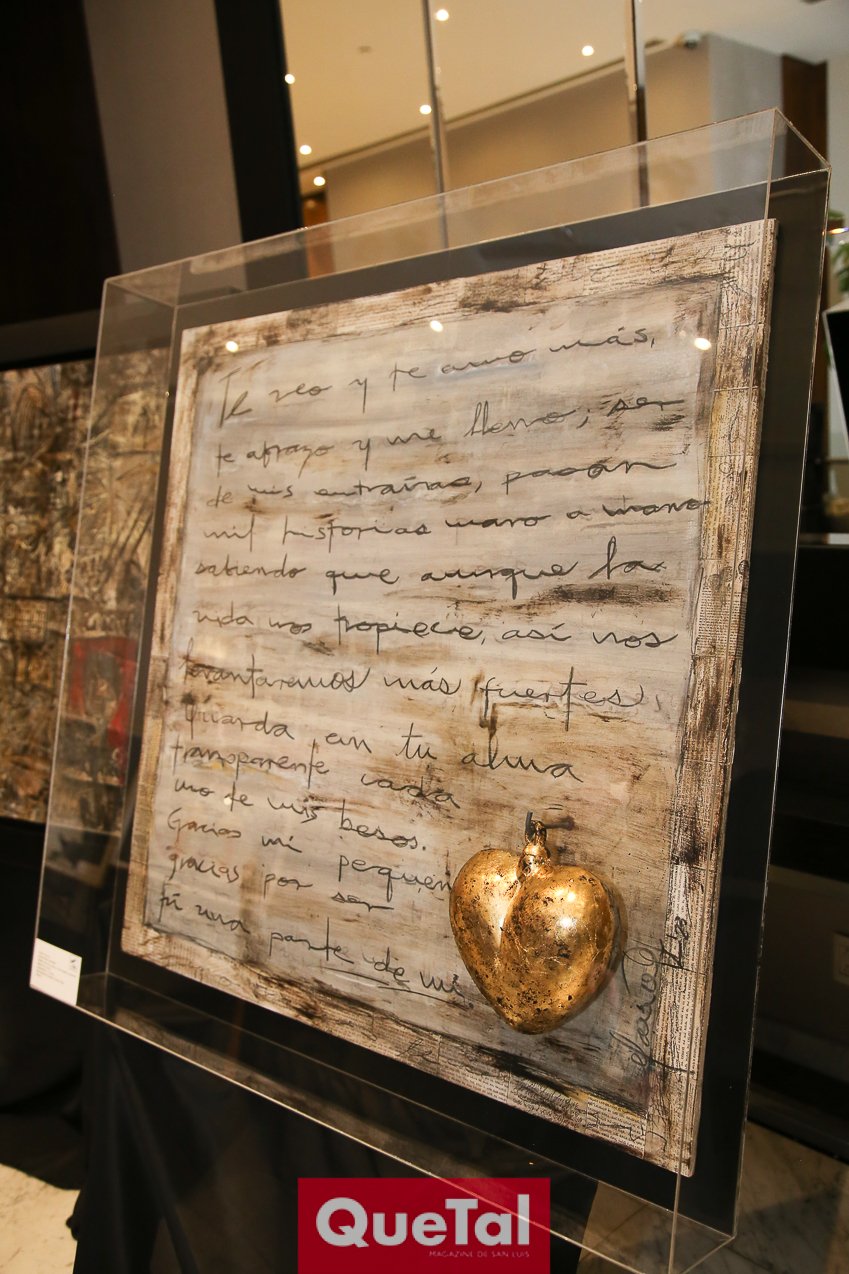 Te veo y te amo más,
te abrazo y me lleno; ser
de mis entrañas, pasan
mil historias mano a mano
sabiendo que aunque la
vida nos tropiecie, así nos
levantaremos más fuertes,
guarda en tu alma
transparente cada
uno de mis besos.
Gracias mi pequeñ
gracias por ser
tú una parte de mi.
QueTal
MAGAZINE DE SAN LUIS